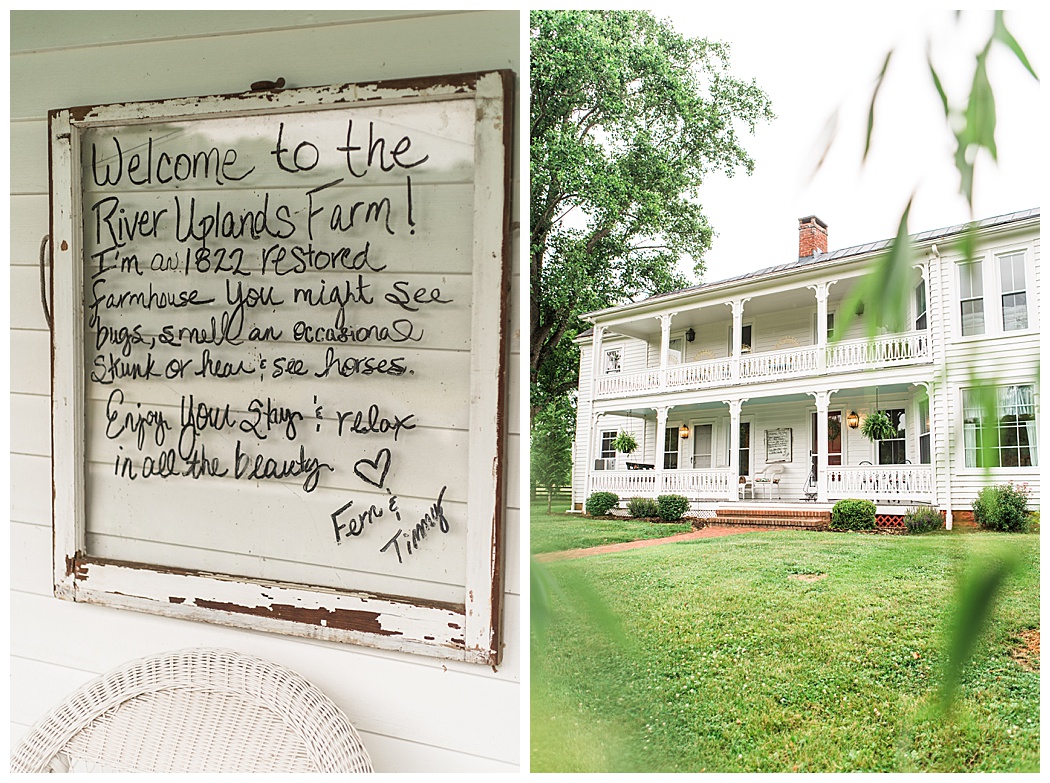 Welcome to the
River Uplands Farm!
I'm an 1822 restored
farmhouse You might see
bugs, smell an occasional
Skunk or hear & see horses.
Enjoy Your Stay & relax
in all the beauty ♡
Fern &
Timmy